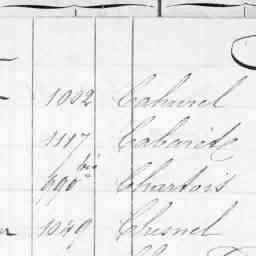 1092 Cahurel
1117 Cabaret
690 bis Chartois
1049 Chesnel